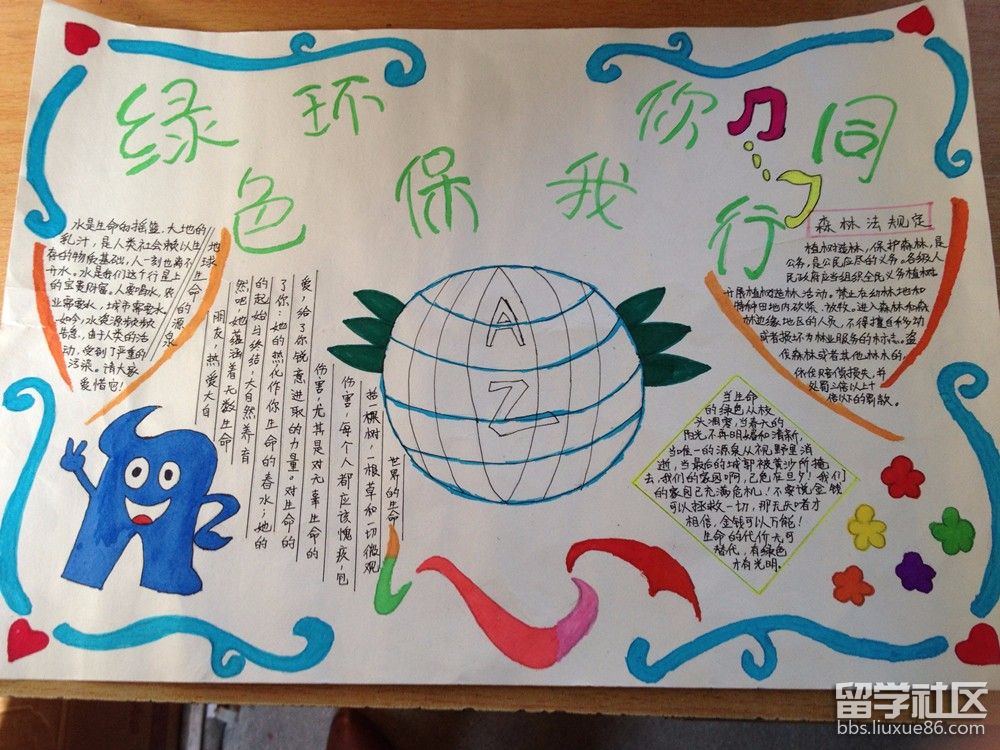 绿色环保我你同行
水是生命的摇篮、大地的
乳汁，是人类社会赖以生
存的物质基础，人一刻也离不
开水。水是我们这个行星上
的宝贵财富。人要喝水，农
业需要水，城市需要水。
如今，水资源频频
告急，由于人类的活
动，受到了严重的
污染。请大家
爱惜它！
地球生命的源泉
朋友，热爱大自
然吧！她蕴涵着无数生命
的起始与终结，大自然养育
了你：她的热化作你生命的春水；她的
爱，给了你锐意进取的力量。对生命的
伤害，尤其是对无辜生命的
伤害，每个人都应该愧疚，包
括一棵树、一根草和一切微观
世界的生命
A
Z
森林法规定
植树造林，保护森林，是
公务，是公民应尽的义务。各级人
民政府应当组织全民义务植树
开展植树造林活动。禁止在幼林地和
特种田地内砍柴、放牧。进入森林和森
林边缘地区的人员，不得擅自移动
或者损坏为林业服务的标志。盗
伐森林或者其他林木的，
依法赔偿损失，并
处罚三倍以上十
倍以下的罚款。
当生命
的绿色从枝
头凋零，当春天的
阳光不再明媚和清新，
当唯一的源泉从视野里消
逝，当最后的城都被黄沙所掩
去，我们的家园啊，已危在旦夕！我们
的家园已充满危机！不要说金钱
可以拯救一切，那无知者才
相信，金钱可以万能！
生命的代价无可
替代，有绿色
才有光明。
留学社区
bbs.liuxue86.com